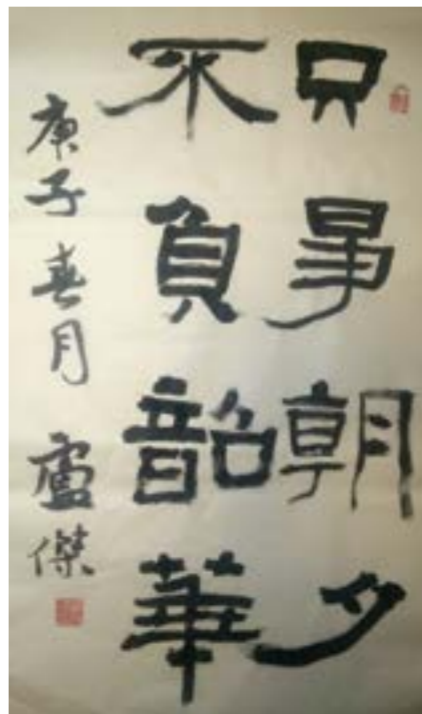 只爭朝夕
不負韶華
庚子春月 盧傑